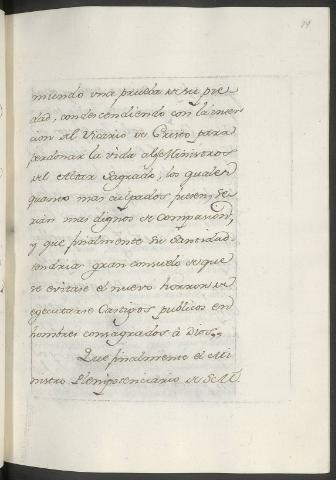 mundo una prueba de su pie
dad, condescendiendo con la inter
cion del Vicario de Cristo para
perdonar la vida a los Ministros
del Altar Sagrado, los quales
quanto mas culpados fuesen, se
rian mas dignos de Compasion,
y que finalmente Su Santidad
tendria gran consuelo de que
se evitase el nuevo horror de
egecutarse Castigos publicos en
hombres consagrados à Dios.
Que finalmente el Mi
nistro Plenipotenciario de S.M.